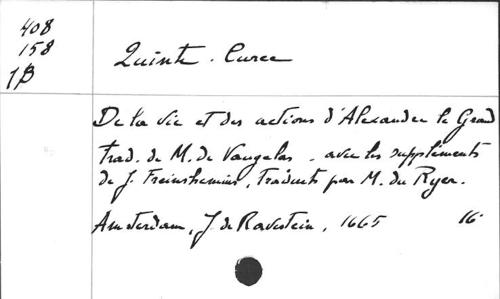 408
158
1β
Quinte-Curce
De la vie et des actions d'Alexander le Grand
trad. de M. de Vaugelas - avec les suppléments
de J. Freinshemius, traduits par M. du Ryer.
Amsterdam, J. de Ravestein, 1665 16°